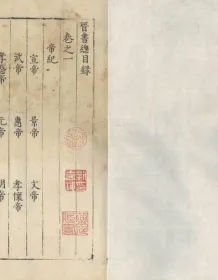 晉書總目錄
卷之一
帝紀
宣帝 景帝 文帝
武帝 惠帝 孝懷帝
孝愍帝 元帝 明帝